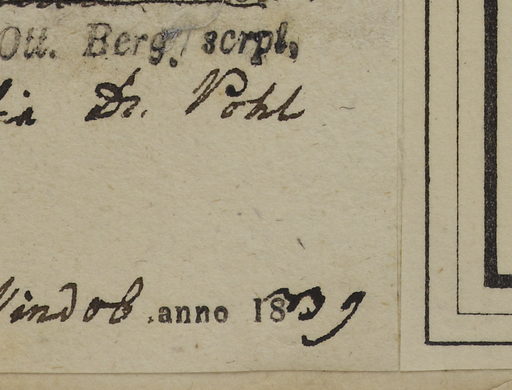 Ott. Berg. scrpt,
Dr. Pohl
Vindob. anno 1839